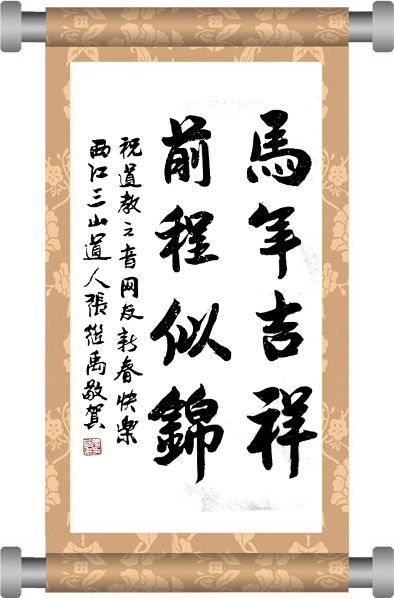 馬年吉祥
前程似錦
祝道教之音网友新春快樂
西江三山道人張继禹敬賀